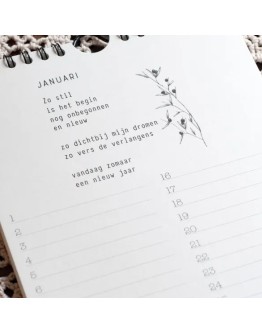 JANUARI
Zo stil
is het begin
nog onbegonnen
en nieuw
zo dichtbij mijn dromen
zo vers de verlangens
vandaag zomaar
een nieuw jaar
1
2
3
4
5
6
16
17
18
19
20
21
22
23
24